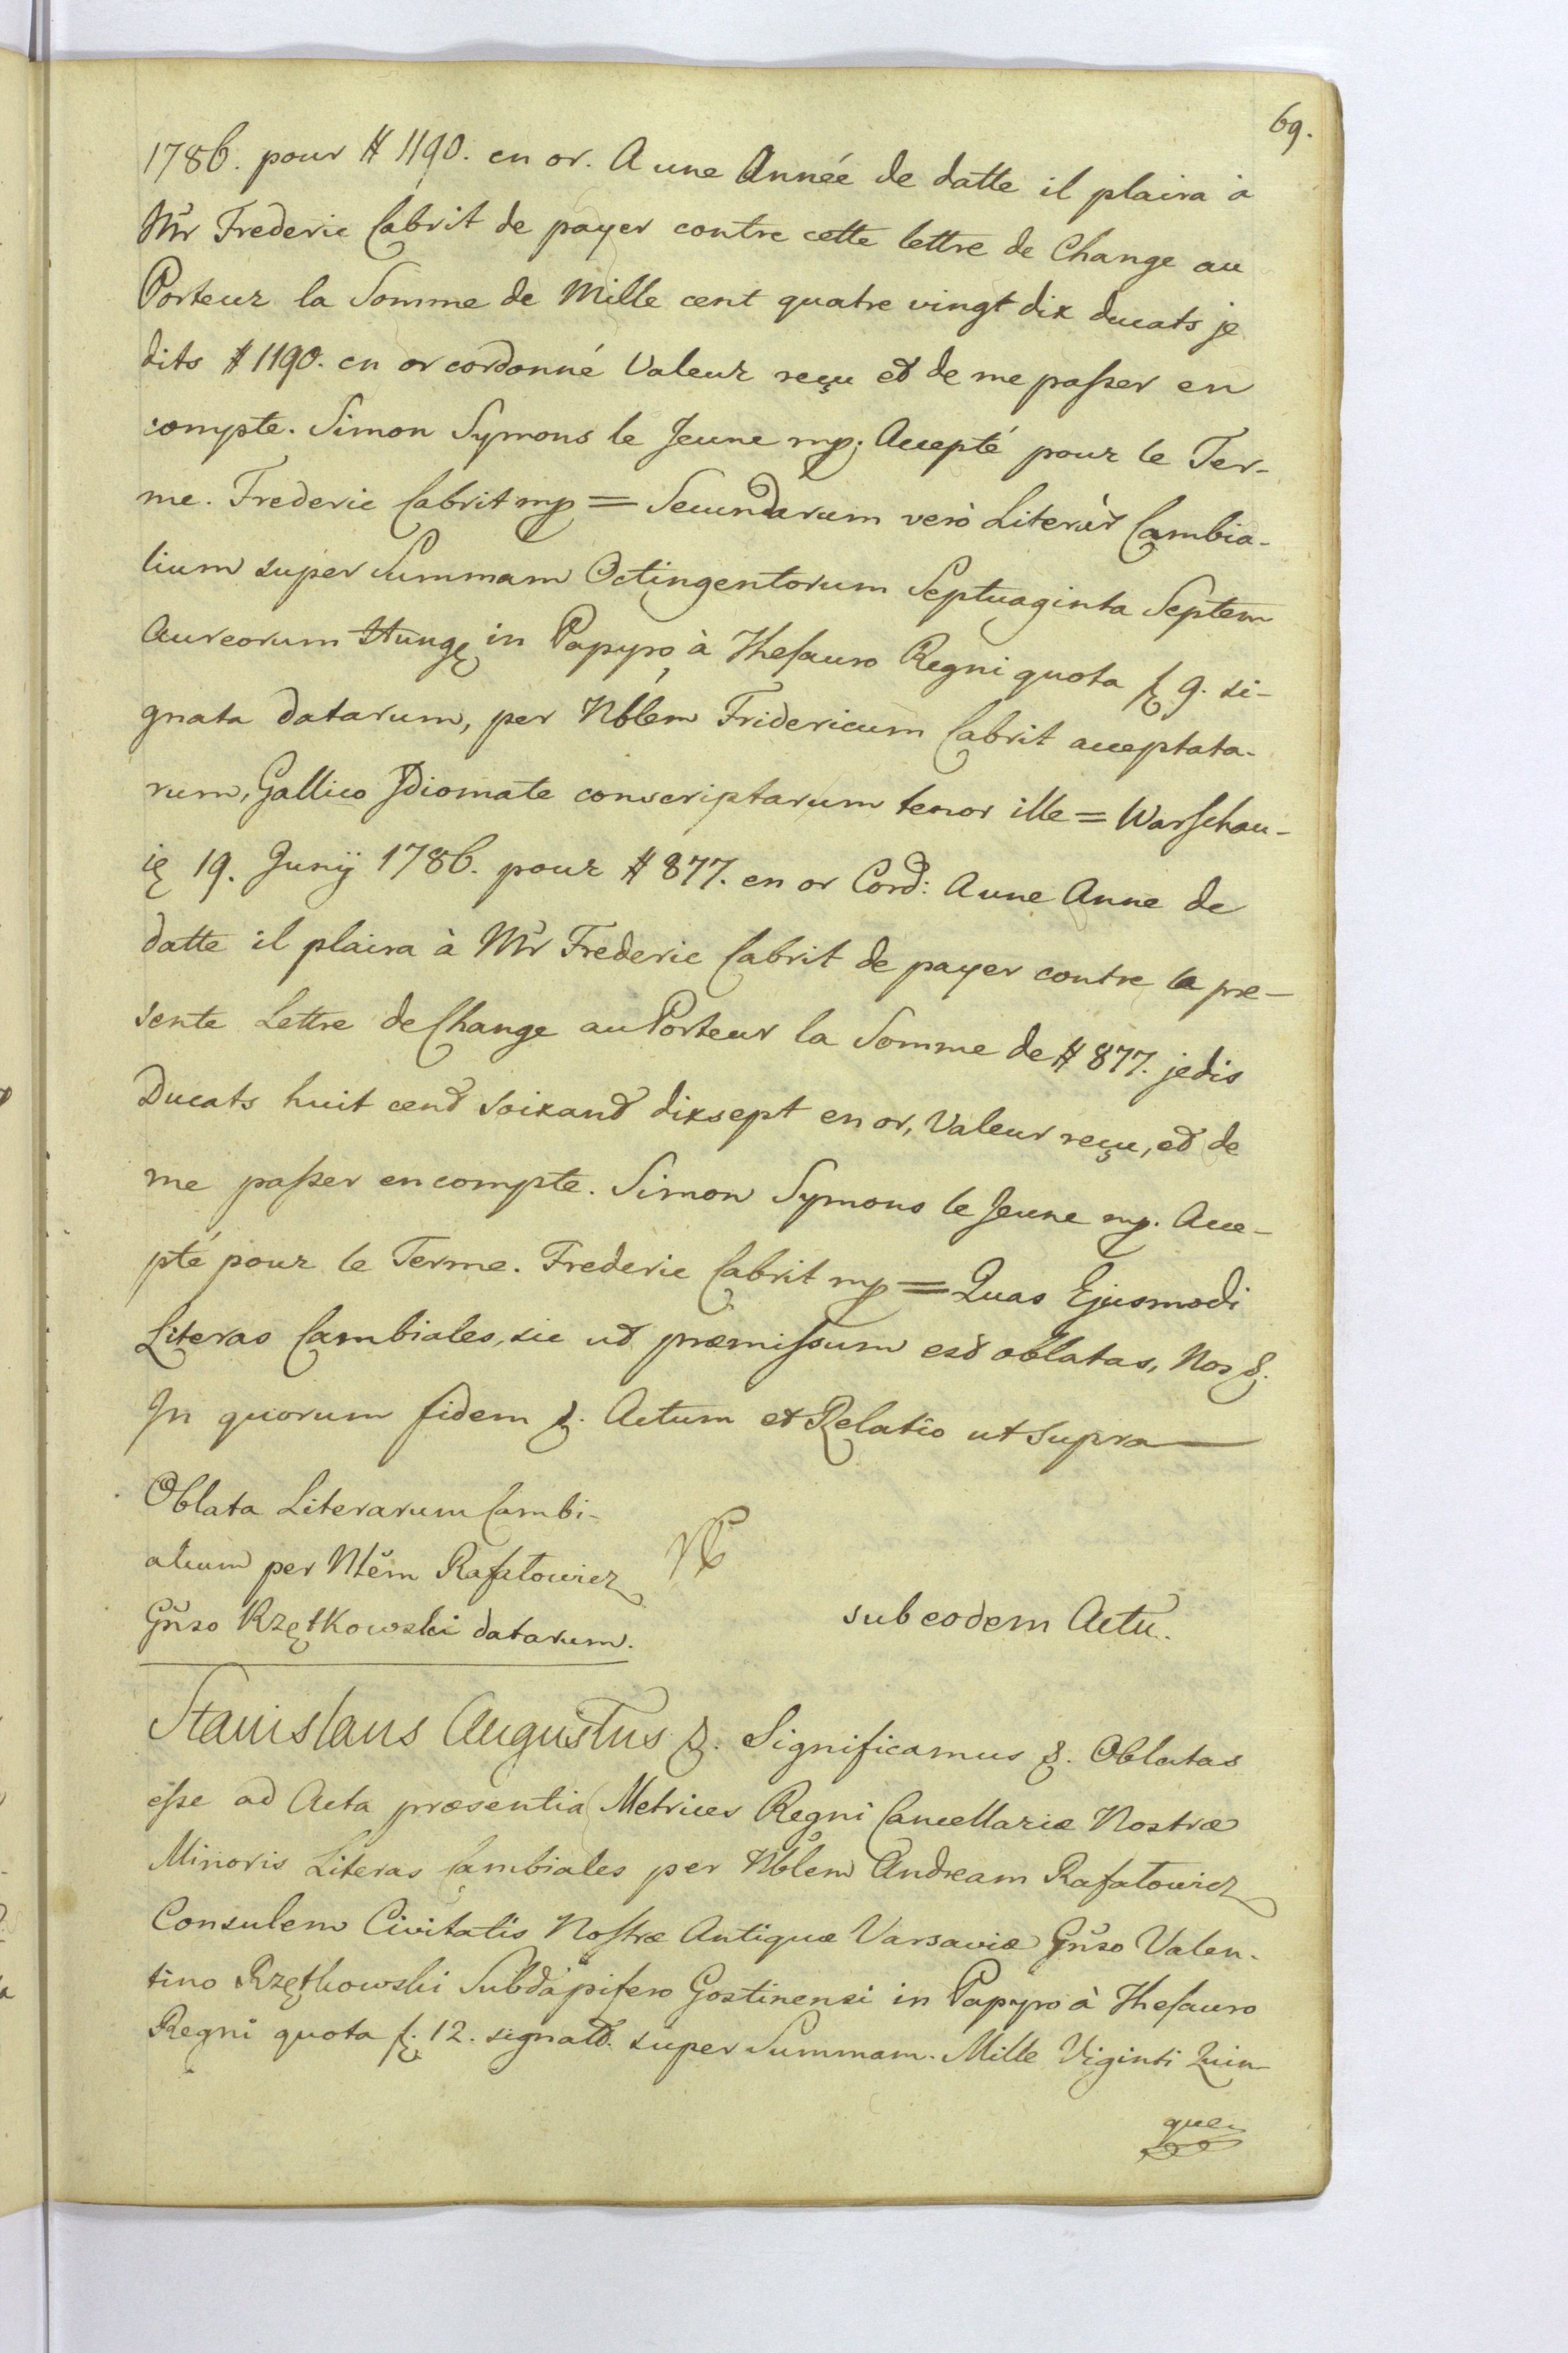 69.
1786. pour # 1190. en or. A une Année de datte il plaira à
Mr Frederic Cabrit de payer contre cette lettre de Change au
Porteur la Somme de Mille cent quatre vingt dix ducats je
dits # 1190. en or cordonné Valeur reçu et de me paſser en
compte. Simon Symons le Jeune mp. Accepté pour le Ter-
me. Frederic Cabrit mp = Secundarum verò Literar̃ Cambia-
lium super Summam Octingentorum Septuaginta Septem
Aureorum Hung. in Papyro à Theſauro Regni quota f. 9. si-
gnata datarum, per Nblem Fridericum Cabrit acceptata-
rum, Gallico Jdiomate conscriptarum tenor ille = Warſchau-
ię 19. Junij 1786. pour # 877. en or Cord: A une Anne de
datte il plaira à Mr Frederic Cabrit de payer contre la pre-
sente Lettre de Change au Porteur la Somme de # 877. je dis
Ducats huit cent soixant dixsept en or, Valeur reçu, et de
me paſser en compte. Simon Symons le Jeune mp. Acce-
pté pour le Terme. Frederic Cabrit mp = Quas Ejusmodi
Literas Cambiales, sic ut præmiſsum est oblatas, Nos &.
Jn quorum fidem &. Actum et Relatio ut supra
Oblata Literarum Cambi-
alium per Nlẽm Rafałowicz
Gñso Rzętkowski datarum.
sub eodem Actu.
Stanislaus Augustus &. Significamus &. Oblatas
eſse ad Acta præsentia Metrices Regni Cancellariæ Nostræ
Minoris Literas Cambiales per Nblem Andream Rafałowicz
Consulem Civitatis Noſtræ Antiquæ Varsaviæ Gñso Valen-
tino Rzętkowski Subdapifero Gostinensi in Papyro à Theſauro
Regni quota f. 12. signatâ. super Summam. Mille Viginti Quin-
que